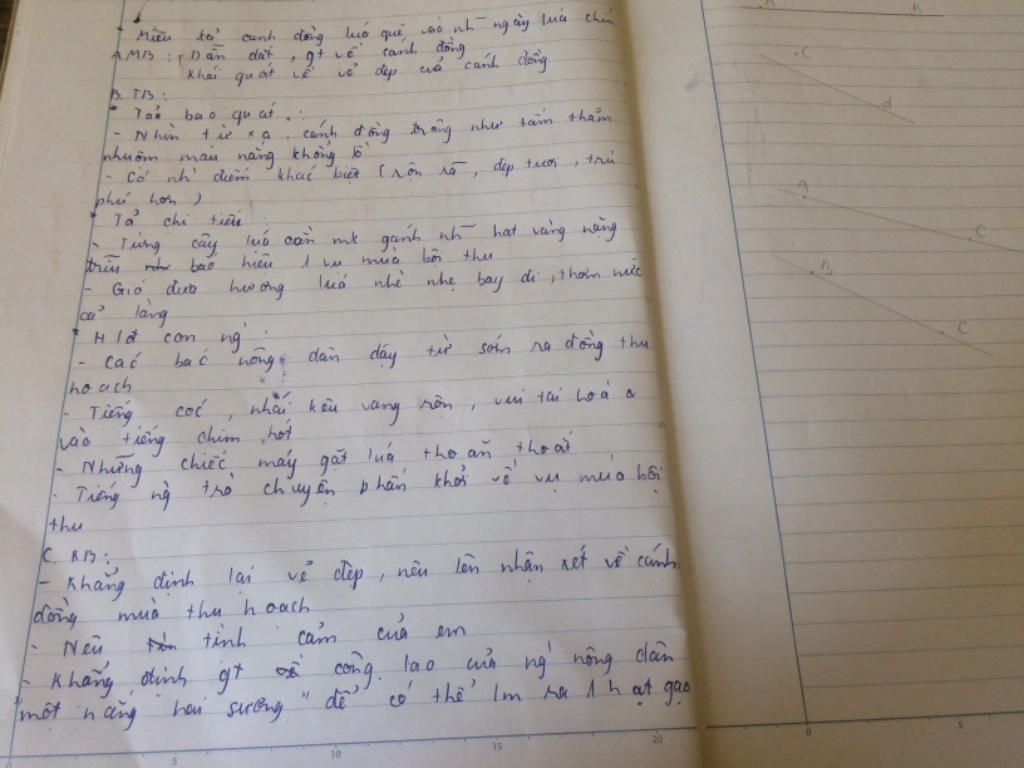 * Miêu tả cánh đồng lúa quê vào nh~ ngày lúa chín
A.MB: - Dẫn dắt, gt về cánh đồng
khái quát về vẻ đẹp của cánh đồng
B. TB:
* Tả bao quát:
- Nhìn từ xa, cánh đồng trông như tấm thảm
nhuộm màu nắng khổng lồ
- Có nh~ điểm khác biệt (rộn rã, đẹp tươi, trù
phú hơn)
* Tả chi tiết:
- Từng cây lúa mk gánh nh~ hạt vàng nặng
trĩu báo hiệu 1 vụ mùa bội thu
- Gió đưa hương lúa nhè nhẹ bay đi, thơm nức
cả làng
* HĐ con ng`
- Các bác nông dân dậy từ sớm ra đồng thu
hoạch
- Tiếng cóc, nhái kêu vang rộn, vui tai hoà
vào tiếng chim hót
- Những chiếc máy gặt lúa thoăn thoắt
- Tiếng ng` trò chuyện phấn khởi về vụ mùa bội
thu
C. KB:
- Khẳng định lại vẻ đẹp, nêu lên nhận xét về cánh
đồng mùa thu hoạch
- Nêu tình cảm của em
- Khẳng định gt công lao của ng` nông dân
"một nắng hai sương" để có thể lm ra 1 hạt gạo
A
B
C
d
A
C
B
C
0
5
10
15
20
0
5